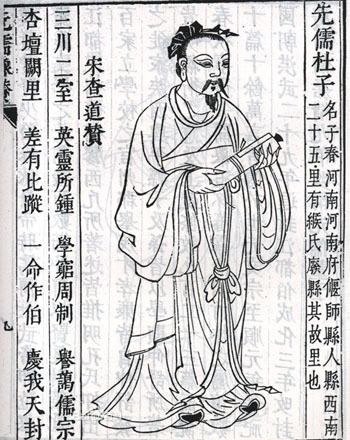 先儒杜子
名子春河南河南府偃師縣人縣西南
二十五里有緱氏廢縣其故里也
宋查道贊
三川二室 英靈所鍾 學窮周制 譽藹儒宗
杏壇闕里 差有比蹤 一命作伯 慶我天封